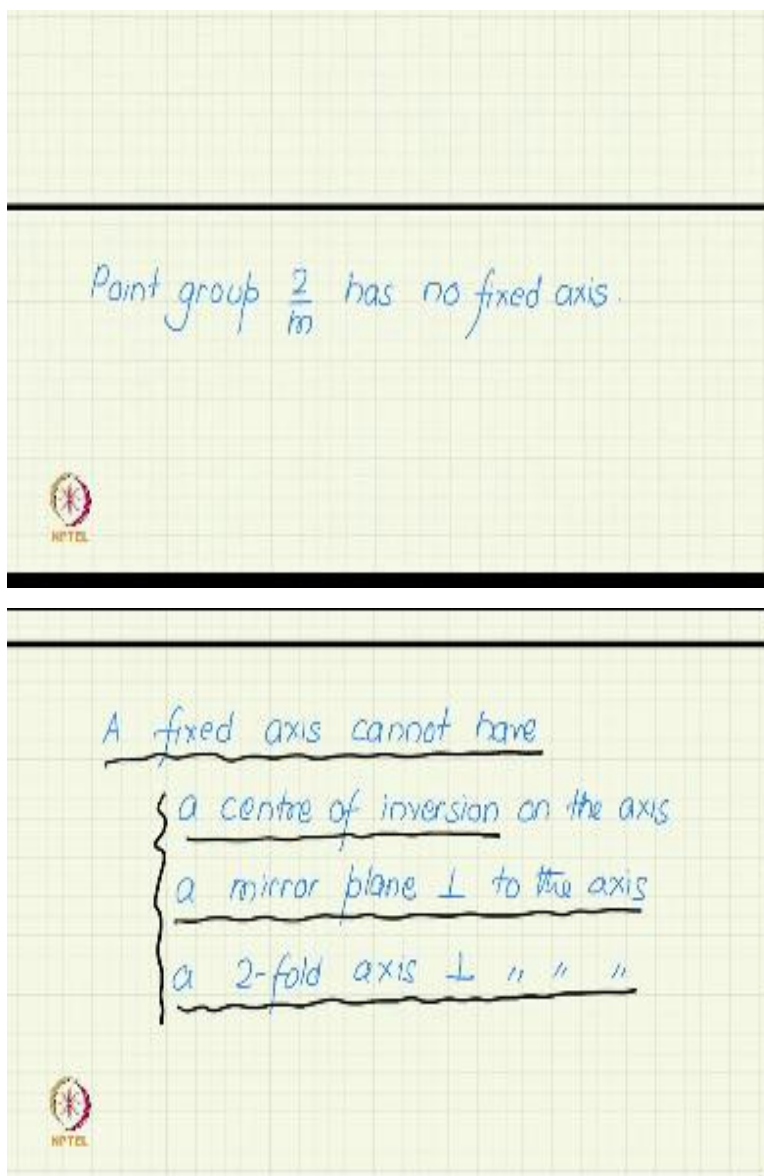 Point group 2/m has no fixed axis.
NPTEL
A fixed axis cannot have
a centre of inversion on the axis
a mirror plane ⊥ to the axis
a 2-fold axis ⊥ " " "
NPTEL